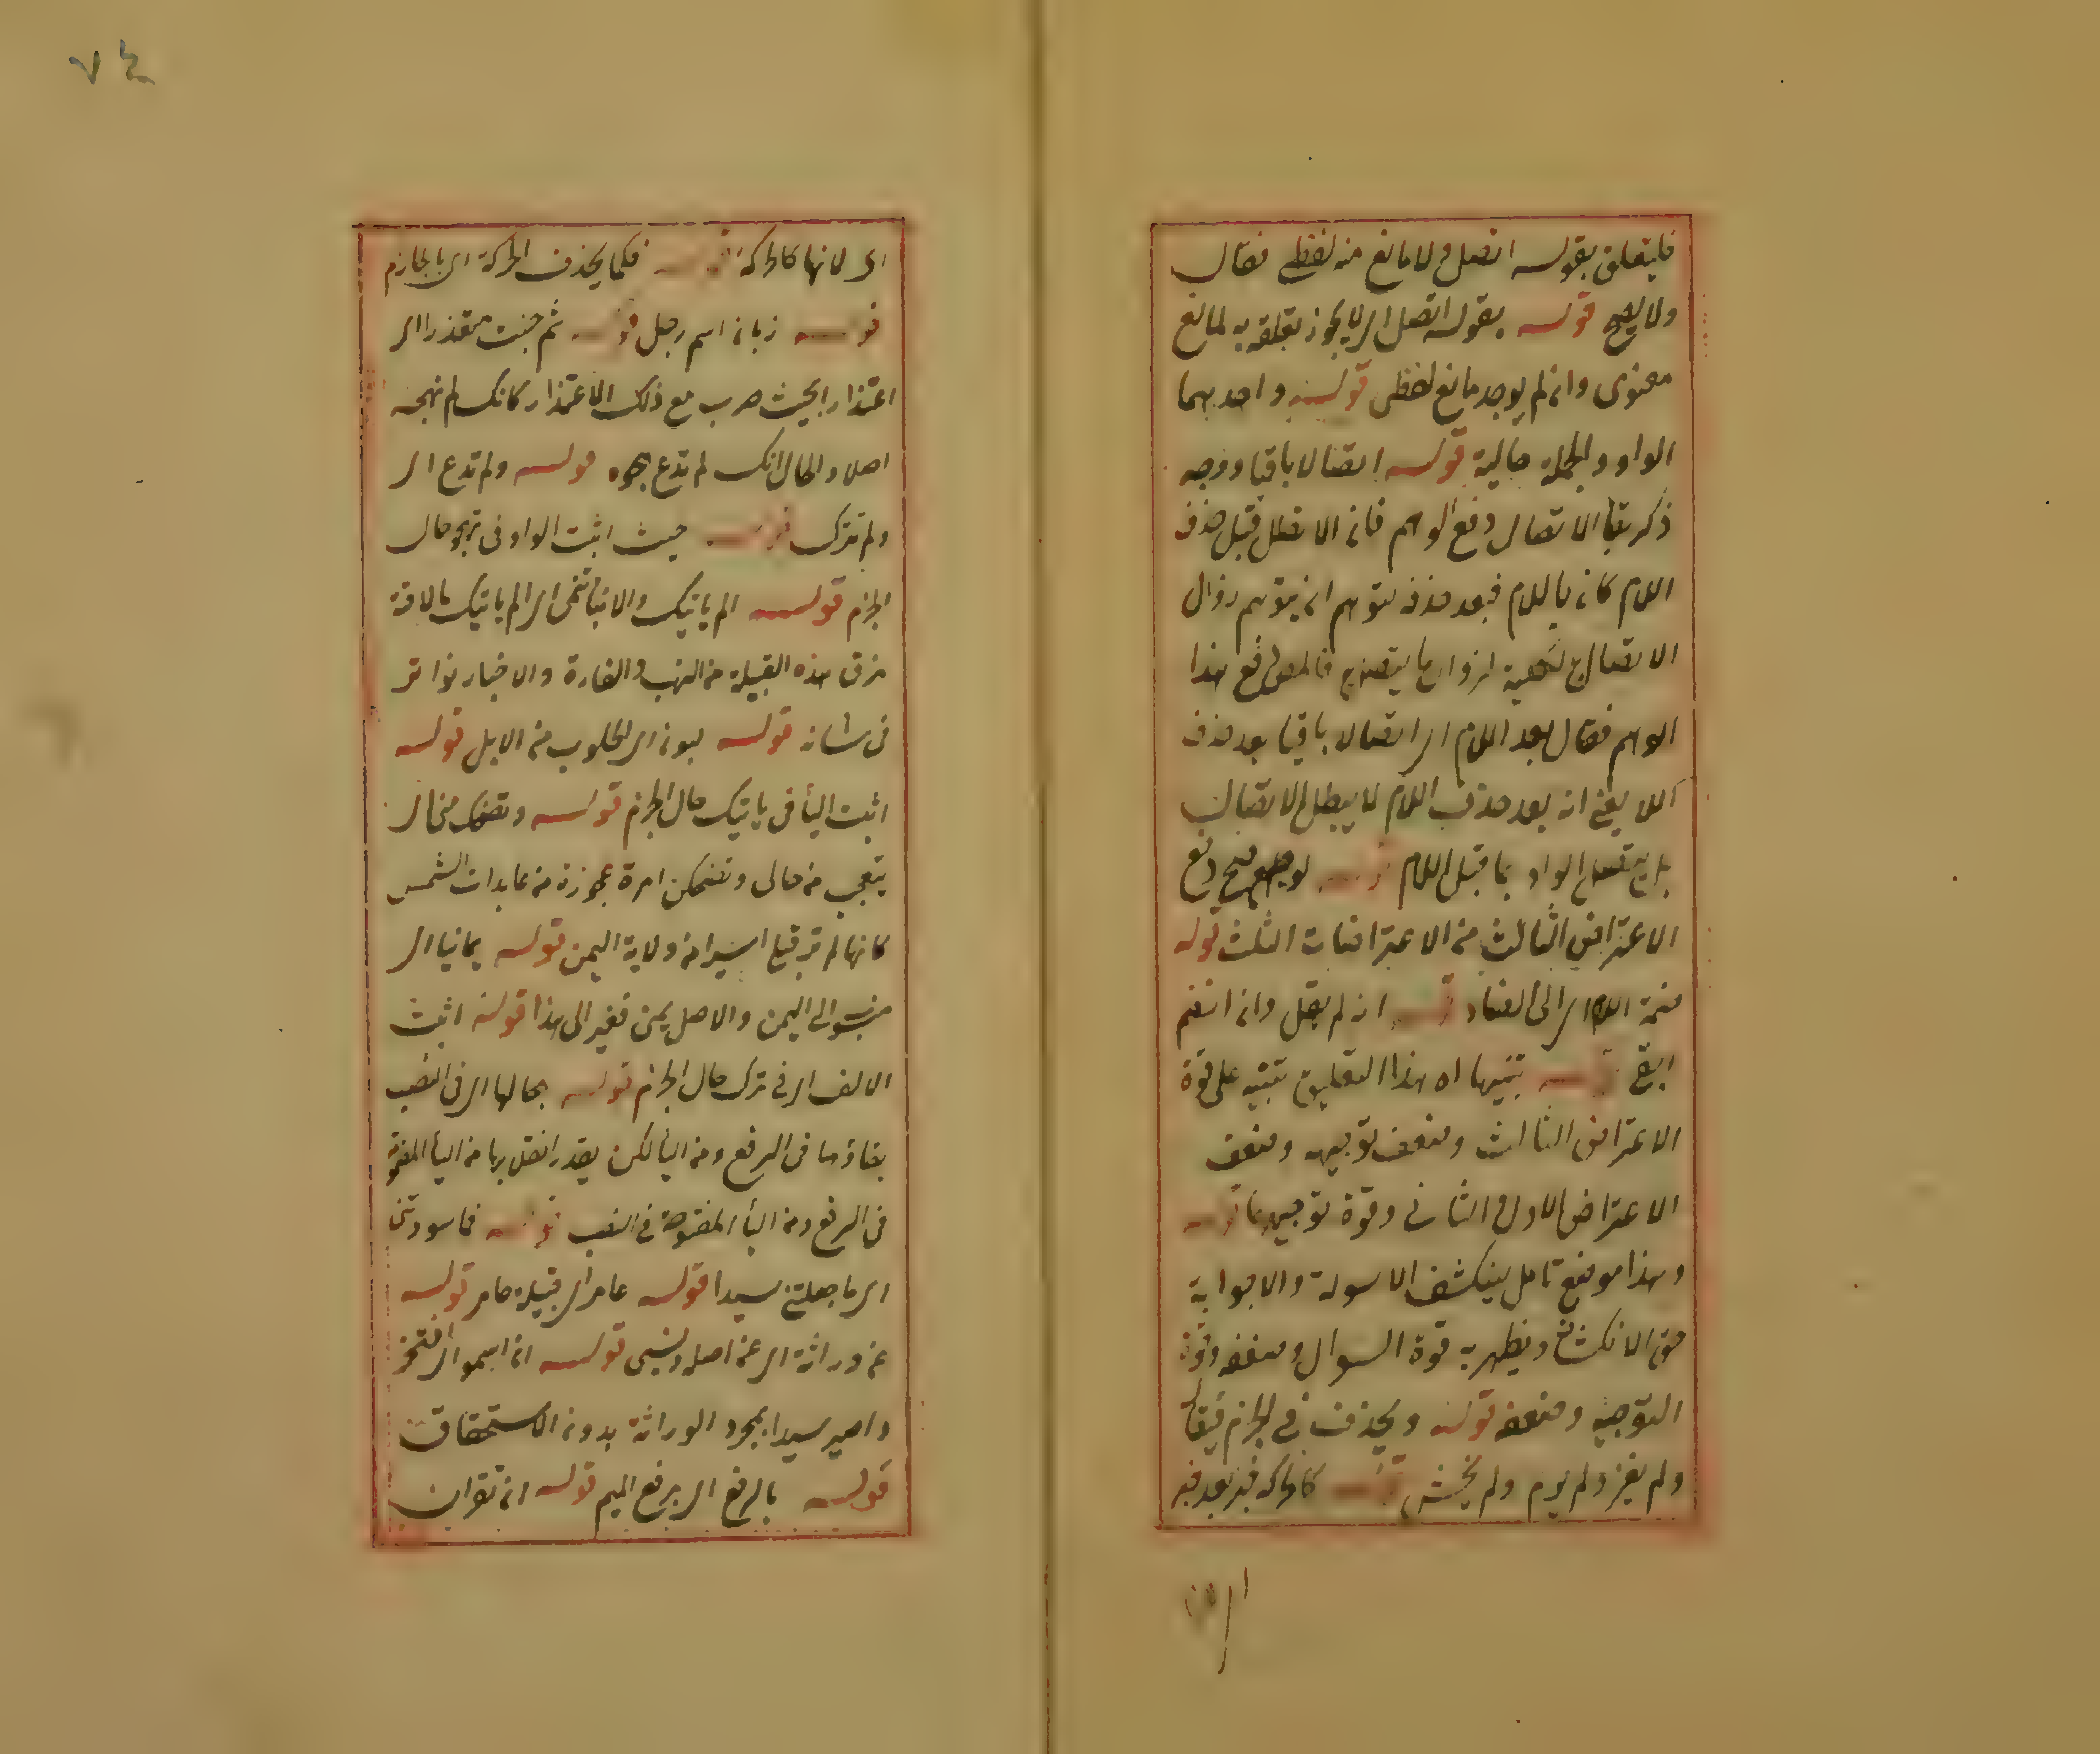 فليتعلق بقوله اتصل ولا مانع منه لفظى فقال
ولا يصح قوله بقوله اتصل اى لا يجوز تعلقه به لمانع
معنوى وان لم يوجد مانع لفظى قوله واحد بهما
الواو والجملة حالية قوله اتصالا باقيا ووجه
ذكر بقاء الاتصال دفع الوهم فان الاتصال قبل حذف
اللام كان باللام فبعد حذفه يتوهم زوال
الاتصال ما يتصل به فالمص دفع هذا
الوهم فقال بعد اللام اى اتصالا باقيا بعد حذف
اللام يعنى ان بعد حذف اللام لا يبطل الاتصال
بل يتصل الواو بما قبل اللام قوله دفع
الاعتراض الثالث من الاعتراضات الثلث قوله
ضمة اى الضاد قوله ان لم يقل وان انضم
ابقى قوله تنبيها اه هذا التعليق تنبيه على قوة
الاعتراض الثالث وضعف توجيهه وضعف
الاعتراض الاول والثانى وقوة توجيههما قوله
وهذا موضع تامل لينكشف الاسولة والاجوابة
حق الانكشاف ويظهر به قوة السوال وضعفه وقوة
التوجيه وضعفه قوله ويحذف فى الجزم فيقال
ولم يغز ولم يرم ولم يخش قوله كالحركة
اى لانها كالحركة قوله فكما يحذف الحركة اى بالجازم
قوله زبان اسم رجل قوله ثم جئت معتذرا اى
اعتذارا بحيث صرت مع ذلك الاعتذار كانك لم تهجه
اصلا والحال انك لم تدع هجوه قوله ولم تدع اى
ولم تترك قوله حيث اثبت الواو فى تهجو حال
الجزم قوله الم ياتيك والانباء تنمى اى الم ياتيك مالاقت
هذه القبيلة من النهب والغارة والاخبار تواتر
فى شانه قوله لبون اى الحلوب من الابل قوله
اثبت الياء فى ياتيك حال الجزم قوله وتضحك منى اى
يتعجب من حالى وتضحكن امرة عجوزة من عابدات الشمس
كانها لم تر قبلى اسيرا من ولاية اليمن قوله يمانيا اى
منسوب الى اليمن والاصل يمنى فغير الى هذا قوله اثبت
الالف اى فى ترى حال الجزم قوله بحالها اى فى النصب
بقاؤها فى الرفع ومن الياء لكن يقدر انقلابها من الياء المضمومة
فى الرفع ومن الياء المفتوحة فى النصب قوله فما سودتنى
اى ما جعلتنى سيدا قوله عامر اى قبيلة عامر قوله
عن وراثة اى عن اصلى ونسبى قوله ان اسمو اى افتخر
واصير سيدا بمجرد الوراثة بدون الاستحقاق
قوله بالرفع اى برفع الميم قوله ان تقران
٧٤